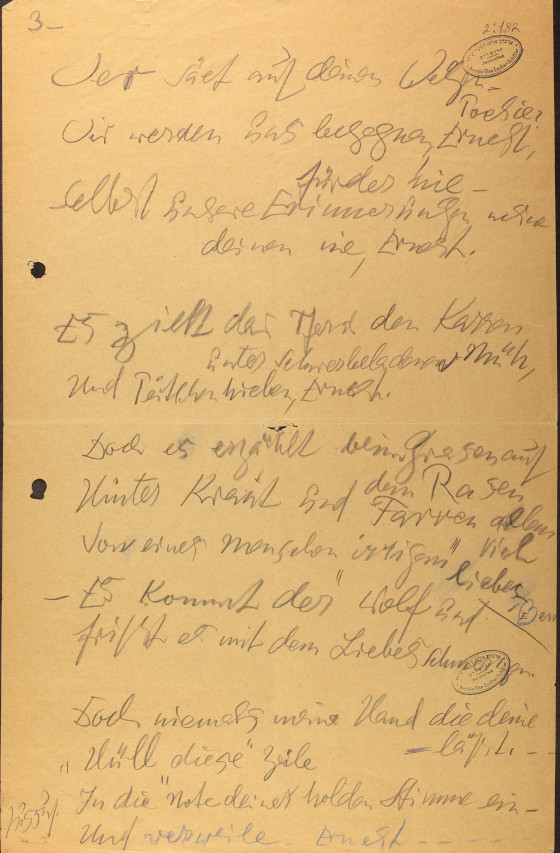 3-
2:182
Der säet auf deinen Wegen
Poesien
Wir werden uns begegnen, Ernest,
fürder nie -
Selbst unsere Erinnerungen meine
deinen nie, Ernest.
Es zieht das Pferd den Karren
unter schwerbeladener Müh,
Und Peitschenhieben, Ernest.
Doch es erzählt beim Grasen auf
dem Rasen
Hinter Kraut und Farren allem
Vieh
Von eines Menschen artigem
lieber
- Es kommt der Wolf und
frißt es mit dem Liebes
Doch niemals meine Hand die deine
läßt. - -
"Hüll diese" Zeile
In die "Note deiner holden Stimme ein -
Und verweile - Ernest - - - -